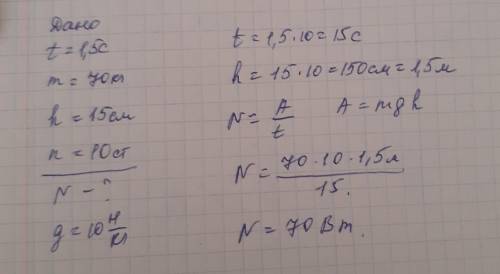 Дано
t = 1,5с
m = 70кг
h = 15см
n = 10ст
N - ?
g = 10 Н/кг
t = 1,5·10 = 15с
h = 15·10 = 150см = 1,5м
N = A/t A = mgh
N = 70·10·1,5м/15.
N = 70Вт.